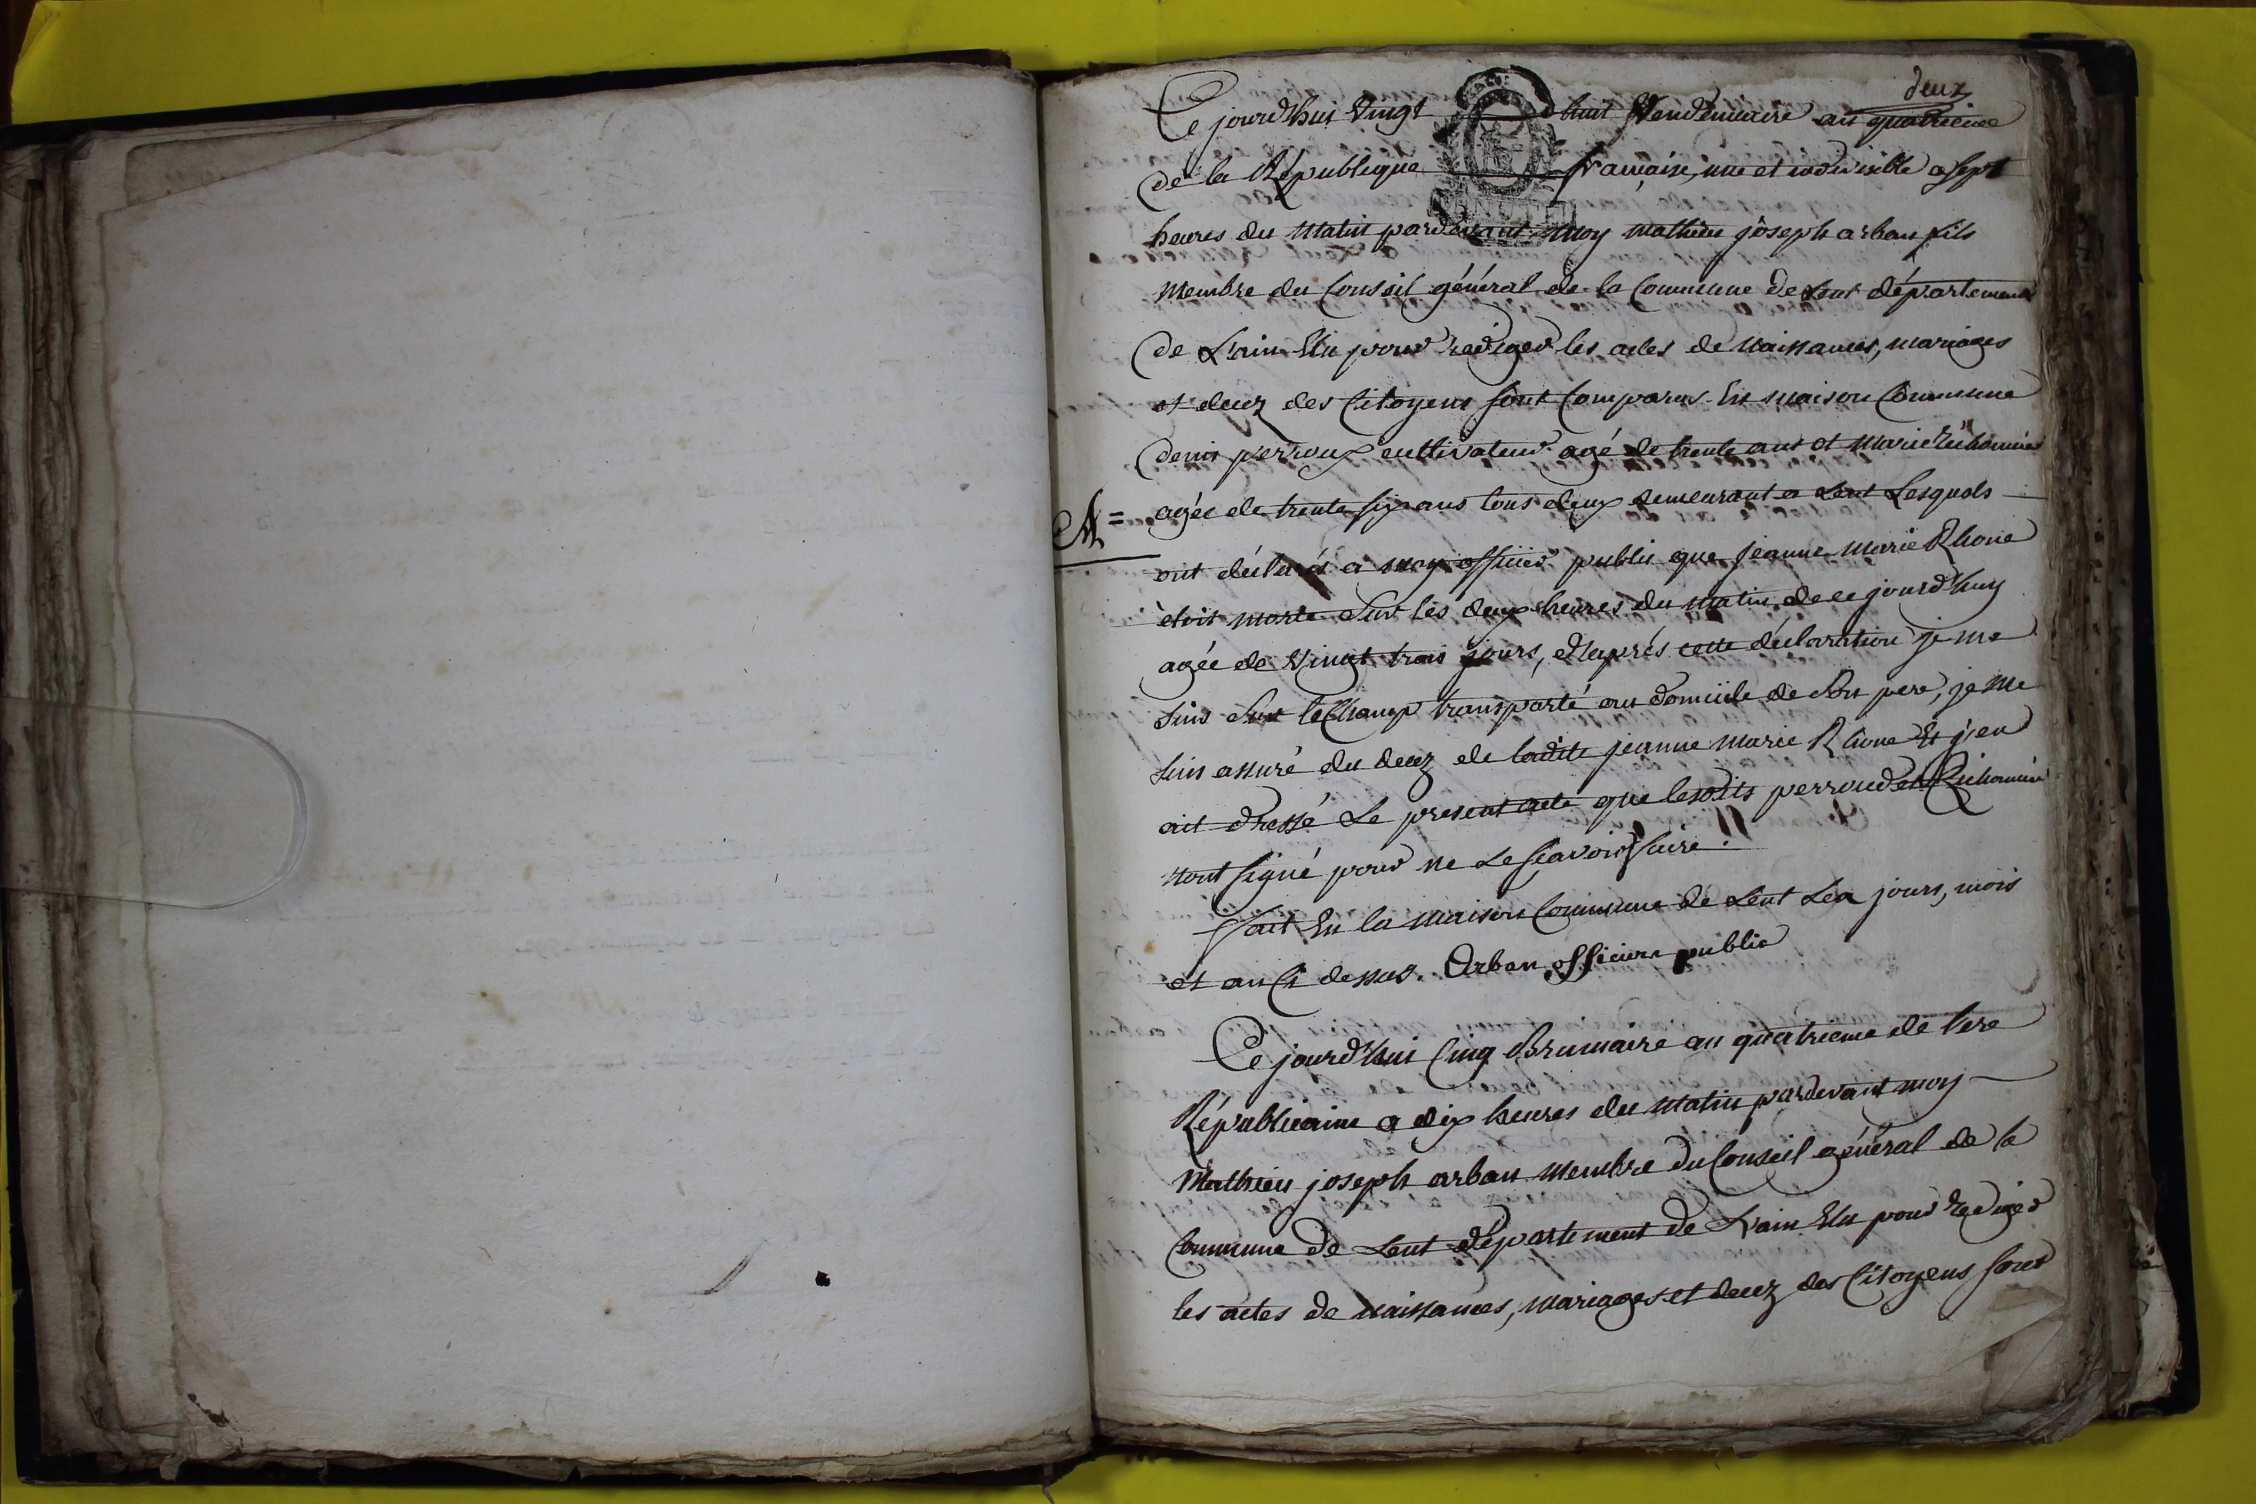 deux
Ce jourd'hui vingt huit Vendemiaire an quatrieme
de la République francaise, une et indivisible a sept
heures du matin pardevant moy mathieu joseph arban fils
membre du Conseil général de la Commune de Lent département
de L'ain Elu pour rediger les actes de naissances, mariages
et decez des Citoyens sont Comparus En maison Commune
denis perroux cultivateur agé de trente ans et marie
A = agée de trente six ans tous deux demeurant a Lent Lesquels
ont déclarés a moy officier public que jeanne Marie Rhone
étoit morte Sur les deux heures du matin de ce jourd'huy
agée de vingt trois jours, d'aprés cette déclaration je me
suis Sur le Champ transporté au domicile de Son pere, je me
suis assuré du decez de ladite jeanne marie Rhone Et j'en
ait dressé Le present acte que lesdits perroud et
n'ont signé pour ne Le sçavoir faire.
fait En la maison Commune de Lent Les jours, mois
et an Ci dessus. Arban officiere public
Ce jourd'hui Cinq Brumaire an quatrieme de l'ere
Républicaine a dix heures du matin pardevant moy
Mathieu joseph arban membre du Conseil général de la
Commune de Lent département de L'ain Elu pour rediger
les actes de naissances, mariages et decez des Citoyens sont